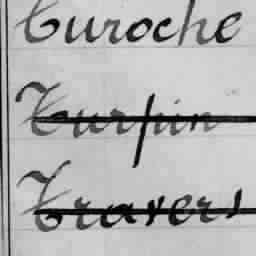 Turoche
Turpin
Travers